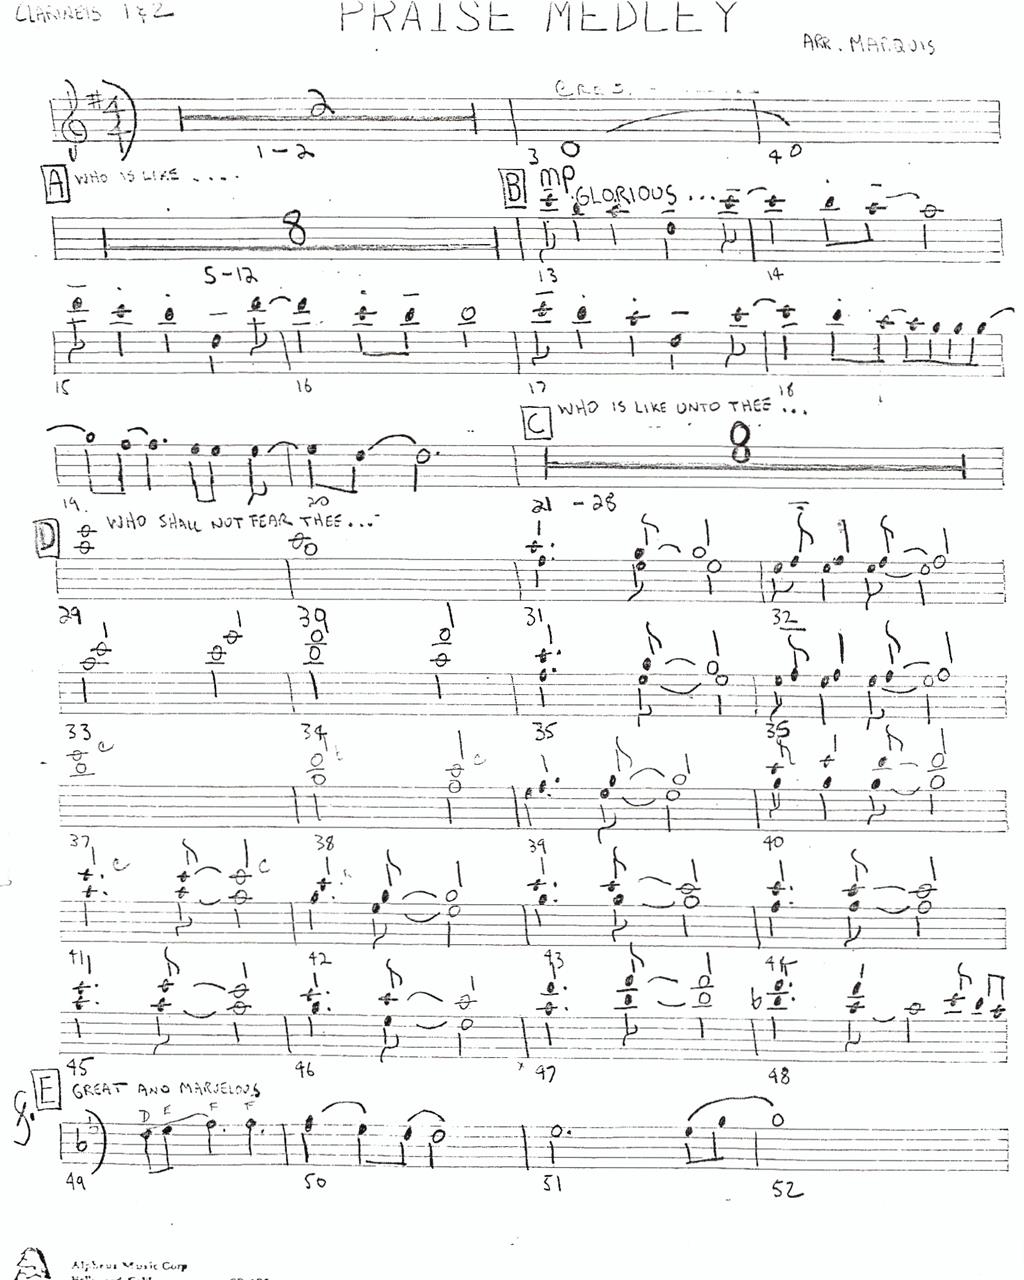 CLARINETS 1 & 2
PRAISE MEDLEY
ARR. MARQUIS
2
CRES.
1-2
3
4
A WHO IS LIKE ....
B mp GLORIOUS ...
8
5-12
13
14
15
16
17
18
C WHO IS LIKE UNTO THEE ...
8
19
20
21 - 28
D WHO SHALL NOT FEAR THEE ...
29
30
31
32
33
34
35
35
C
C
37
38
39
40
C
C
41
42
43
44
45
46
47
48
E GREAT AND MARVELOUS
D E F F
49
50
51
52
Alpheus Music Corp